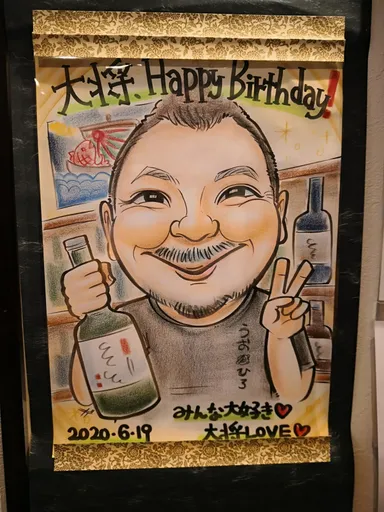 大将、Happy Birthday!
うお ひろ
みんな大好き♥
2020.6.19 大将LOVE♥